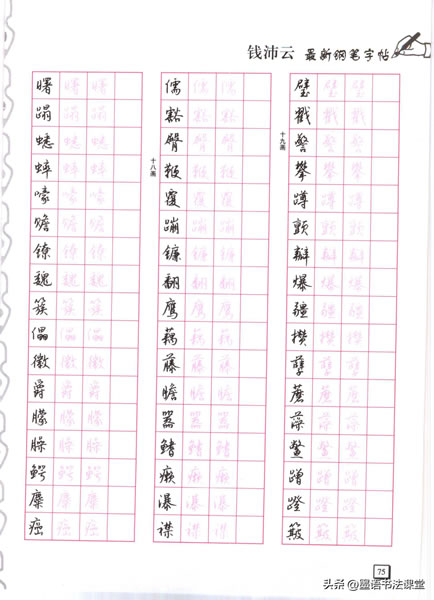 钱沛云 最新钢笔字帖
曙 曙 曙
蹋 蹋 蹋
蟋 蟋 蟋
蟀 蟀 蟀
嚎 嚎 嚎
赡 赡 赡
镣 镣 镣
魏 魏 魏
簇 簇 簇
儡 儡 儡
徽 徽 徽
爵 爵 爵
朦 朦 朦
臊 臊 臊
鳄 鳄 鳄
糜 糜 糜
癌 癌 癌
懦 懦 懦
豁 豁 豁
臀 臀 臀
十八画
鞭 鞭 鞭
覆 覆 覆
蹦 蹦 蹦
镰 镰 镰
翻 翻 翻
鹰 鹰 鹰
藕 藕 藕
藤 藤 藤
瞻 瞻 瞻
嚣 嚣 嚣
鳍 鳍 鳍
癞 癞 癞
瀑 瀑 瀑
襟 襟 襟
璧 璧 璧
戳 戳 戳
十九画
警 警 警
攀 攀 攀
蹲 蹲 蹲
颤 颤 颤
瓣 瓣 瓣
爆 爆 爆
疆 疆 疆
攒 攒 攒
孽 孽 孽
蘑 蘑 蘑
藻 藻 藻
鳖 鳖 鳖
蹭 蹭 蹭
蹬 蹬 蹬
簸 簸 簸
75
头条 @墨语书法课堂